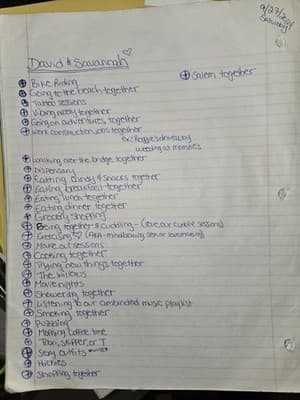 9/27/2024
Saturday
David & Savannah ♡
Bike Riding
Salem together
Going to the beach together
Tattoo sessions
Vibing nicely together
Going on adventures together
Work construction jobs together
Ex: Reggie's driveway
weeding at mommies
Walking over the bridge together
Dispensary
Eatting candy & snacks together
Eatting breakfast together
Eatting lunch together
Eatting dinner together
Grocery shopping
Being together & cuddling - (love our cuddle sessions)
Exercising ♡ (AKA- mindblowing sex or lovemaking)
Make out sessions
Cooking together
Trying new things together
The Willows
Movie nights
Showering together
Listening to our combinded music playlist
Smoking together
Puzzling
Morning coffee time
Town, stuffer, or T
Sexy outfits
Hickies
Shopping together